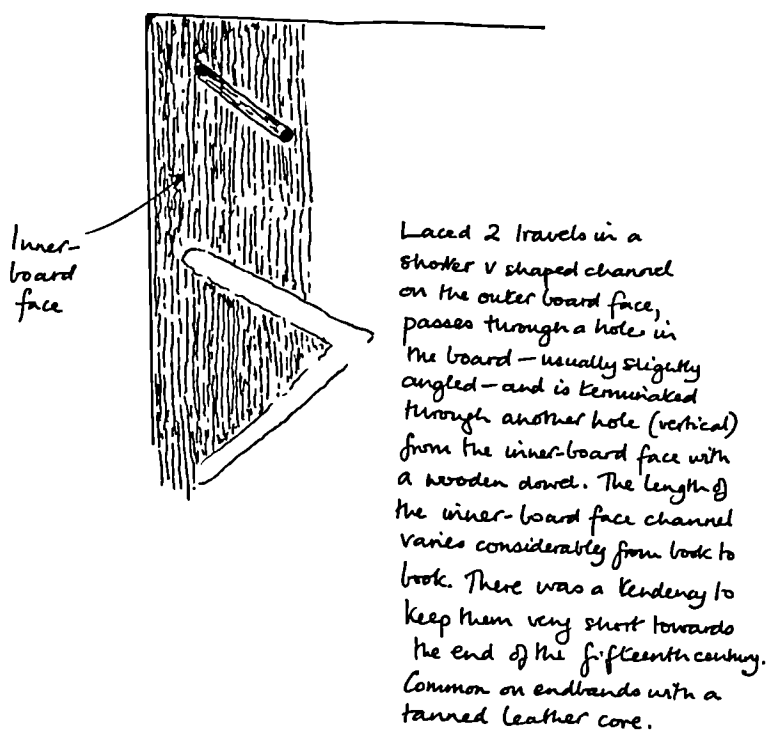 Inner-
board
face
Laced 2 travels in a
shorter v shaped channel
on the outer board face,
passes through a hole in
the board – usually slightly
angled – and is terminated
through another hole (vertical)
from the inner-board face with
a wooden dowel. The length of
the inner-board face channel
varies considerably from book to
book. There was a tendency to
keep them very short towards
the end of the fifteenth century.
Common on endbands with a
tanned leather core.